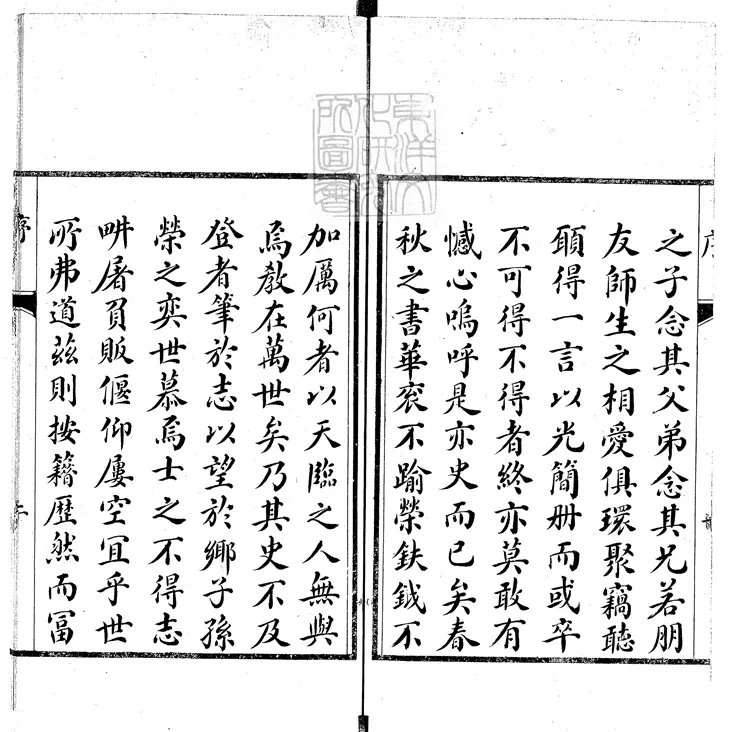 之子念其父弟念其兄若朋
友師生之相愛俱環聚竊聽
願得一言以光簡册而或卒
不可得不得者終亦莫敢有
憾心嗚呼是亦史而已矣春
秋之書華衮不踰榮鈇鉞不
加厲何者以天臨之人無與
焉教在萬世矣乃其史不及
登者筆於志以望於鄉子孫
榮之奕世慕焉士之不得志
畊屠負販偃仰屢空冝乎世
所弗道兹則按籍歷然而冨
序